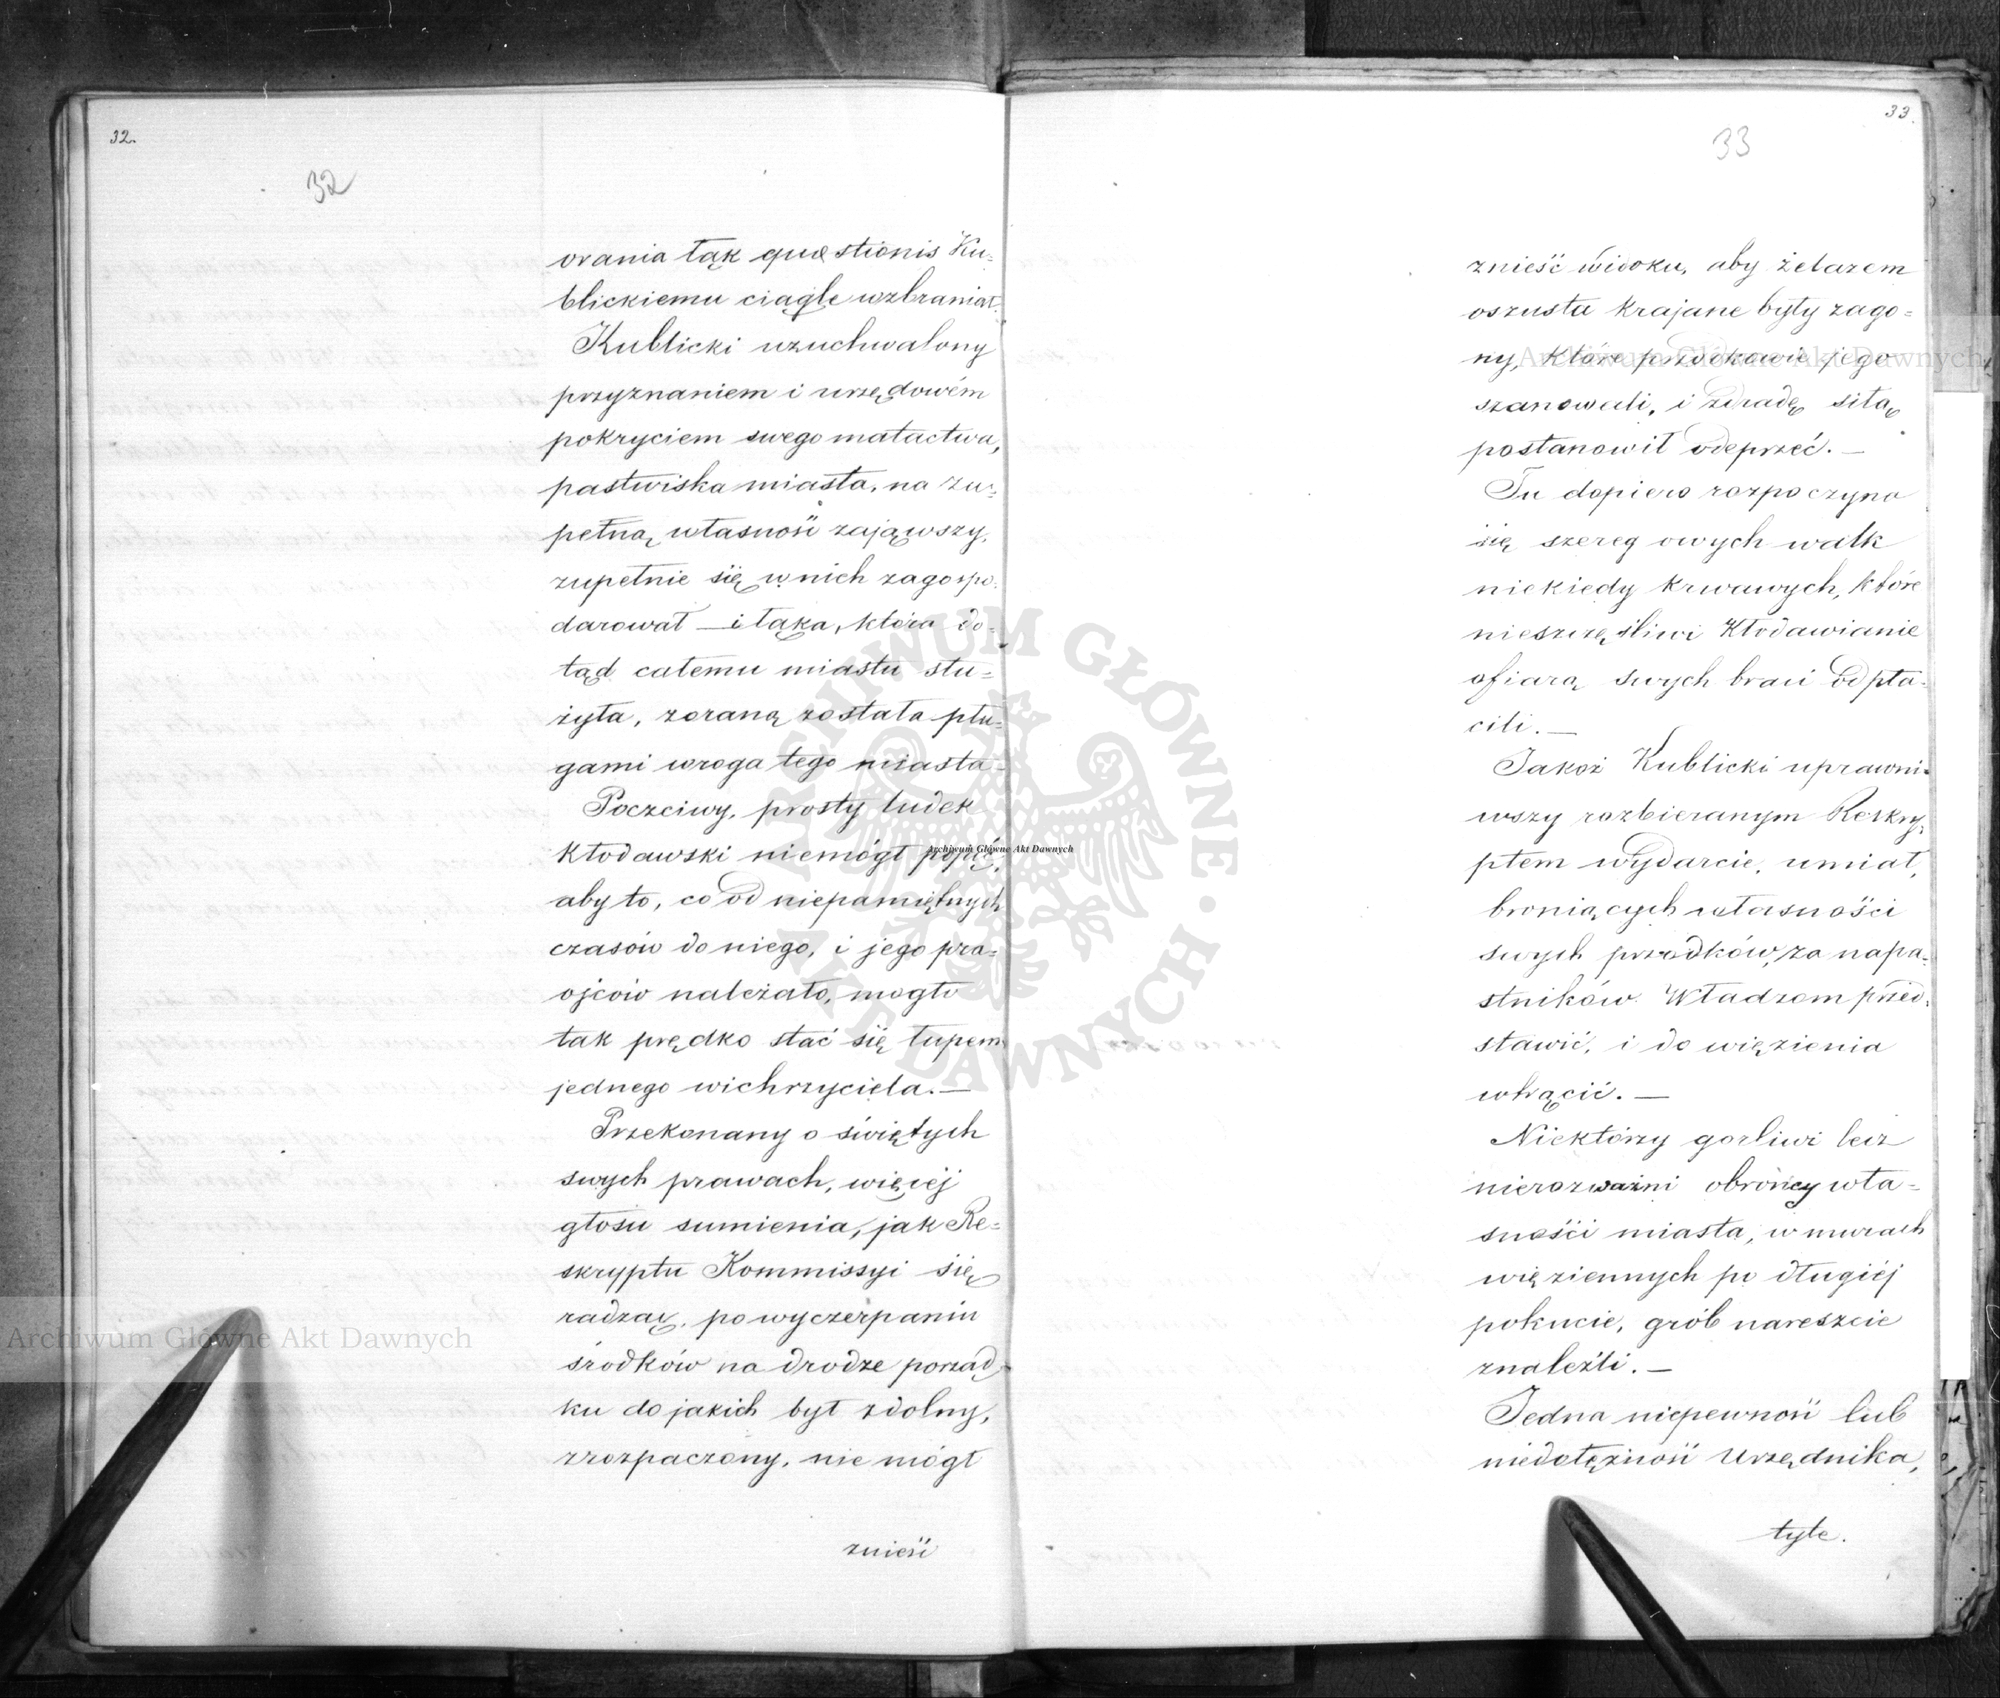 32.
32
orania łąk quæstionis Ku-
blickiemu ciągle wzbraniał.
Kublicki uzuchwalony
przyznaniem i urzędowém
pokryciem swego matactwa,
pastwiska miasta, na zu-
pełną własność zająwszy,
zupełnie się w nich zagospo-
darował — i łąka, która do-
tąd całemu miastu słu-
żyła, zoraną została płu-
gami wroga tego miasta.
Poczciwy, prosty ludek
Kłodawski niemógł pojąć,
aby to, co od niepamiętnych
czasów do niego, i jego pra-
ojców należało, mogło
tak prędko stać się łupem
jednego wichrzyciela. —
Przekonany o świętych
swych prawach, więcéj
głosu sumienia, jak Re-
skryptu Kommissyi się
radząc, po wyczerpaniu
środków na drodze porząd-
ku do jakich był zdolny,
zrozpaczony, nie mógł
znieść
33.
33
znieść widoku, aby żelazem
oszusta krajane były zago-
ny, które przodkowie jego
szanowali, i zdradę siłą
postanowił odeprzeć. —
Tu dopiero rozpoczyna
się szereg owych walk
niekiedy krwawych, które
nieszczęśliwi Kłodawianie
ofiarą swych braci odpła-
cili. —
Jakoż Kublicki uprawni-
wszy rozbieranym Reskry-
ptem wydarcie, umiał,
broniących własności
swych przodków, za napa-
stników Władzom przed-
stawić, i do więzienia
wtrącić. —
Niektórzy gorliwi lecz
nierozważni obrońcy wła-
sności miasta, w murach
więziennych po długiéj
pokucie, grób nareszcie
znaleźli. —
Jedna niepewność lub
niedołężność Urzędnika,
tyle.
Archiwum Główne Akt Dawnych
Archiwum Główne Akt Dawnych
Archiwum Główne Akt Dawnych
ARCHIWUM GŁÓWNE · AKT DAWNYCH